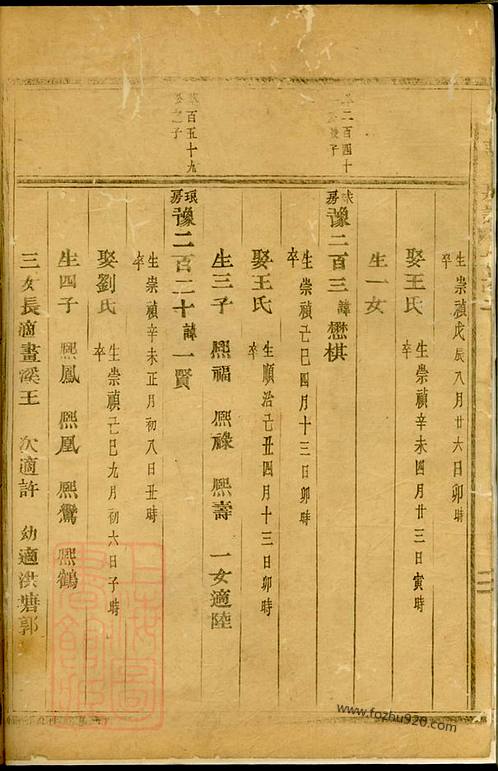 生崇禎戊辰八月廿六日卯時
卒
娶王氏
生崇禎辛未四月廿三日寅時
卒
生一女
二百四十
房
豫二百三 諱懋棋
生崇禎己巳四月十三日卯時
卒
娶王氏
生順治己丑四月十三日卯時
卒
生三子 熙福 熙祿 熙壽 一女適陸
百五十九
公之子
琅房
豫二百二十 諱一賢
生崇禎辛未正月初八日丑時
卒
娶劉氏
生崇禎己巳九月初六日子時
卒
生四子 熙鳳 熙凰 熙鸞 熙鶴
三女長適畫溪王 次適許 幼適洪塘郭
上海圖
書館藏
www.fozhu920.com